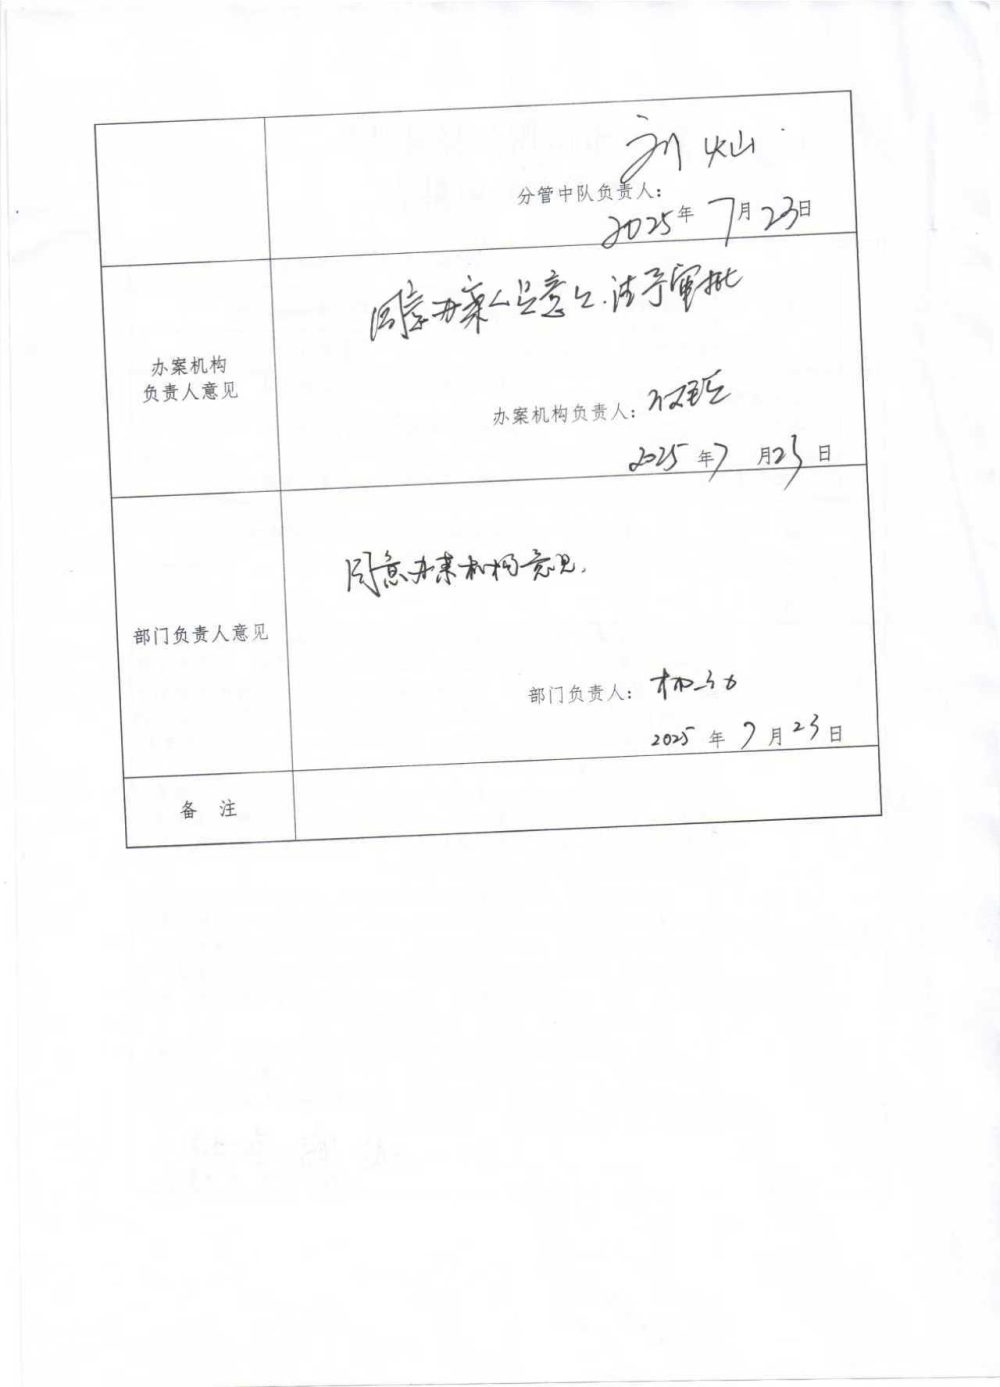 刘灿
分管中队负责人：
2025年 7月23日
同意办案人员意见.请予审批
办案机构
负责人意见
办案机构负责人：
2025 年 7 月23 日
同意办案机构意见.
部门负责人意见
部门负责人：
2025 年 7 月 23 日
备 注